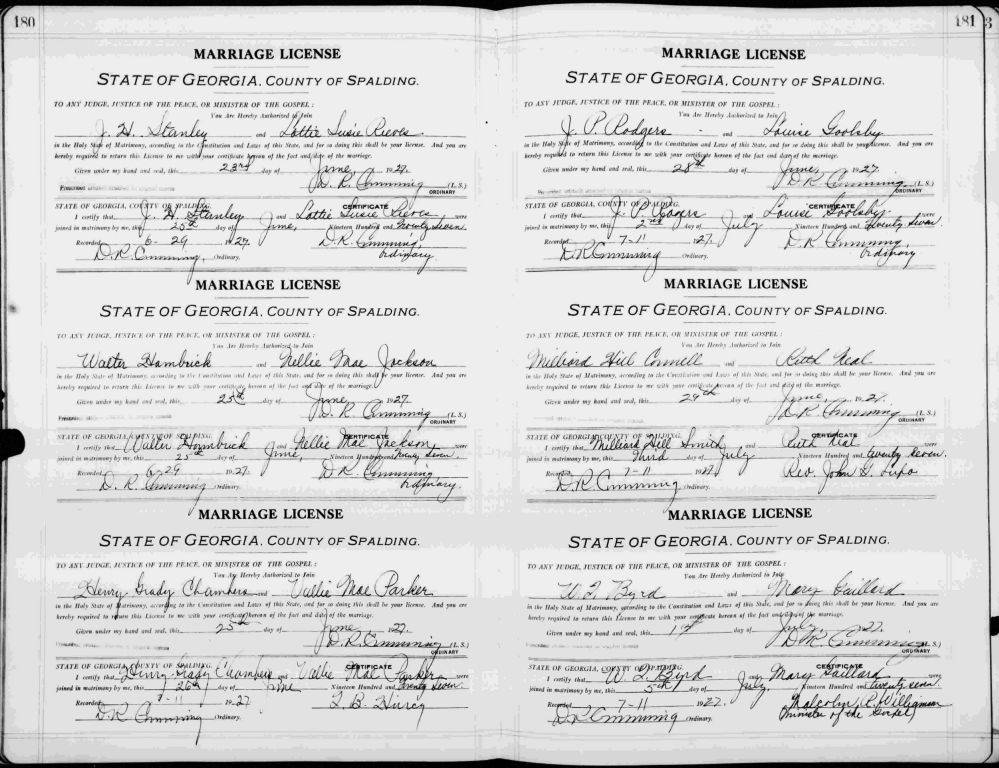 180
MARRIAGE LICENSE
STATE OF GEORGIA, COUNTY OF SPALDING.
TO ANY JUDGE, JUSTICE OF THE PEACE, OR MINISTER OF THE GOSPEL:
You Are Hereby Authorized to Join
J. H. Stanley and Lottie Susie Reeves
in the Holy State of Matrimony, according to the Constitution and Laws of this State, and for so doing this shall be your license. And you are
hereby required to return this License to me with your certificate hereon of the fact and date of the marriage.
Given under my hand and seal, this 23rd day of June, 1927.
D. R. Cumming (L. S.)
ORDINARY
STATE OF GEORGIA, COUNTY OF SPALDING. CERTIFICATE
I certify that J. H. Stanley and Lottie Susie Reeves were
joined in matrimony by me, this 25th day of June, Nineteen Hundred and twenty seven.
Recorded 6-29 1927. D. R. Cumming,
D. R. Cumming, Ordinary. Ordinary.
MARRIAGE LICENSE
STATE OF GEORGIA, COUNTY OF SPALDING.
TO ANY JUDGE, JUSTICE OF THE PEACE, OR MINISTER OF THE GOSPEL:
You Are Hereby Authorized to Join
Walter Hambrick and Nellie Mae Jackson
in the Holy State of Matrimony, according to the Constitution and Laws of this State, and for so doing this shall be your license. And you are
hereby required to return this License to me with your certificate hereon of the fact and date of the marriage.
Given under my hand and seal, this 25th day of June, 1927.
D. R. Cumming (L. S.)
ORDINARY
STATE OF GEORGIA, COUNTY OF SPALDING. CERTIFICATE
I certify that Walter Hambrick and Nellie Mae Jackson were
joined in matrimony by me, this 25th day of June, Nineteen Hundred and twenty seven.
Recorded 6-29 1927. D. R. Cumming
D. R. Cumming Ordinary. Ordinary.
MARRIAGE LICENSE
STATE OF GEORGIA, COUNTY OF SPALDING.
TO ANY JUDGE, JUSTICE OF THE PEACE, OR MINISTER OF THE GOSPEL:
You Are Hereby Authorized to Join
Henry Grady Chambers and Vallie Mae Parker
in the Holy State of Matrimony, according to the Constitution and Laws of this State, and for so doing this shall be your license. And you are
hereby required to return this License to me with your certificate hereon of the fact and date of the marriage.
Given under my hand and seal, this 25th day of June 1927.
D. R. Cumming (L. S.)
ORDINARY
STATE OF GEORGIA, COUNTY OF SPALDING. CERTIFICATE
I certify that Henry Grady Chambers and Vallie Mae Parker were
joined in matrimony by me, this 26th day of June Nineteen Hundred and twenty seven.
Recorded 7-1 1927
D. R. Cumming Ordinary.
181
3
MARRIAGE LICENSE
STATE OF GEORGIA, COUNTY OF SPALDING.
TO ANY JUDGE, JUSTICE OF THE PEACE, OR MINISTER OF THE GOSPEL:
You Are Hereby Authorized to Join
J. P. Rodgers and Louise Goolsby
in the Holy State of Matrimony, according to the Constitution and Laws of this State, and for so doing this shall be your license. And you are
hereby required to return this License to me with your certificate hereon of the fact and date of the marriage.
Given under my hand and seal, this 28th day of June, 1927.
D. R. Cumming (L. S.)
ORDINARY
STATE OF GEORGIA, COUNTY OF SPALDING. CERTIFICATE
I certify that J. P. Rodgers and Louise Goolsby were
joined in matrimony by me, this 2nd day of July Nineteen Hundred and twenty seven.
Recorded 7-11 1927. D. R. Cumming,
D. R. Cumming Ordinary. Ordinary
MARRIAGE LICENSE
STATE OF GEORGIA, COUNTY OF SPALDING.
TO ANY JUDGE, JUSTICE OF THE PEACE, OR MINISTER OF THE GOSPEL:
You Are Hereby Authorized to Join
Milliard Hill Connell and Ruth Neal
in the Holy State of Matrimony, according to the Constitution and Laws of this State, and for so doing this shall be your license. And you are
hereby required to return this License to me with your certificate hereon of the fact and date of the marriage.
Given under my hand and seal, this 29th day of June, 1927.
D. R. Cumming (L. S.)
ORDINARY
STATE OF GEORGIA, COUNTY OF SPALDING. CERTIFICATE
I certify that Milliard Hill Smith and Ruth Neal were
joined in matrimony by me, this Third day of July Nineteen Hundred and twenty seven.
Recorded 7-11 1927. Rev. John G.
D. R. Cumming Ordinary.
MARRIAGE LICENSE
STATE OF GEORGIA, COUNTY OF SPALDING.
TO ANY JUDGE, JUSTICE OF THE PEACE, OR MINISTER OF THE GOSPEL:
You Are Hereby Authorized to Join
W. T. Byrd and Mary Gaillard
in the Holy State of Matrimony, according to the Constitution and Laws of this State, and for so doing this shall be your license. And you are
hereby required to return this License to me with your certificate hereon of the fact and date of the marriage.
Given under my hand and seal, this 1st day of July, 1927.
D. R. Cumming (L. S.)
ORDINARY
STATE OF GEORGIA, COUNTY OF SPALDING. CERTIFICATE
I certify that W. T. Byrd and Mary Gaillard were
joined in matrimony by me, this 5th day of July, Nineteen Hundred and twenty seven.
Recorded 7-11 1927. Malcolm R. Williamson
D. R. Cumming Ordinary. (Minister of the Gospel)